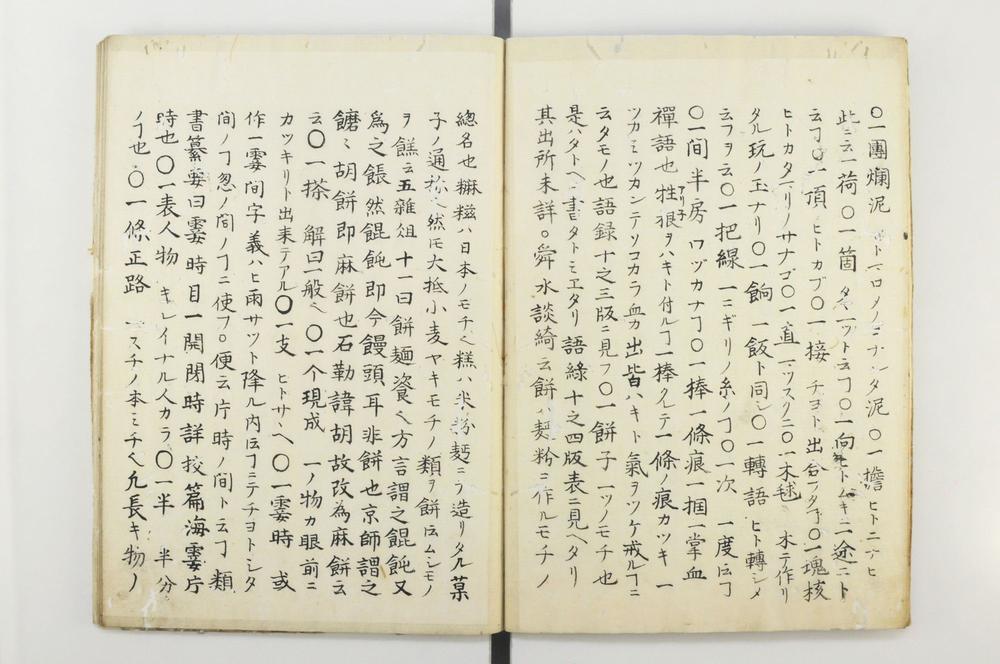 〇一團爛泥 ヒトマロメノヨナレタ泥〇一擔 ヒトニナヒ
此ニ云一荷〇一箇 タヾ一ツト云ヿ〇一向 ヒトムキニ一途ニト
云ヿ〇一頂 ヒトカブ〇一接 チヨト出合フタヿ〇一塊核
ヒトカタマリノサナゴ〇一直 マツスグニ〇一木毬 木テ作リ
タル玩ノ玉ナリ〇一餉 一飯ト同シ〇一轉語 ヒト轉シメ
云フヲ云〇一把線 一ニギリノ糸ノヿ〇一次 一度ノヿ
〇一間半房 ワヅカナヿ〇一棒一條痕一掴一掌血
禪語也牲狠ヲハキト付ルヿ一棒クレテ一條ノ痕カツキ一
ツカミツカンテソコカラ血カ出皆ハキト氣ヲツケ戒ルヿニ
云タモノ也語録十之三版ニ見フ〇一餅子 一ツノモチ也
是ハタトヘ書タトミヱタリ 語綠十之四版表ニ見ヘタリ
其出所未詳。舜水談綺云餅ハ麺粉ニ作ルモチノ
總名也糍糍ハ日本ノモチ也糕ハ米粉麪ニテ造リタル菓
子ノ通称也然ㇾ𪜈大抵小麦ヤキモチノ類ヲ餅𪜈ムシモノ
ヲ餻云五雜俎十一曰餅麺餈也方言謂之餛飩又
為之餦然餛飩即今饅頭耳非餅也京師謂之
𩞄〻胡餅即麻餅也石勒諱胡故改為麻餅云
云〇一搽 解曰一般也〇一个現成 一ノ物カ眼前ニ
カツキリト出来テアル〇一支 ヒトサヽヘ〇一霎時 或
作一霎間字義ハヒ雨サツト降ル内𪜈ヿニテチヨトシタ
間ノヿ忽ノ間ノヿニ使フ。便云片時ノ間ト云ヿ類
書纂要曰霎時目一開閉時詳挍篇海霎片
時也〇一表人物 キレイナル人カラ〇一半 半分
ノヿ也〇一條正路 一スチノ本ミチ也凢長キ物ノ